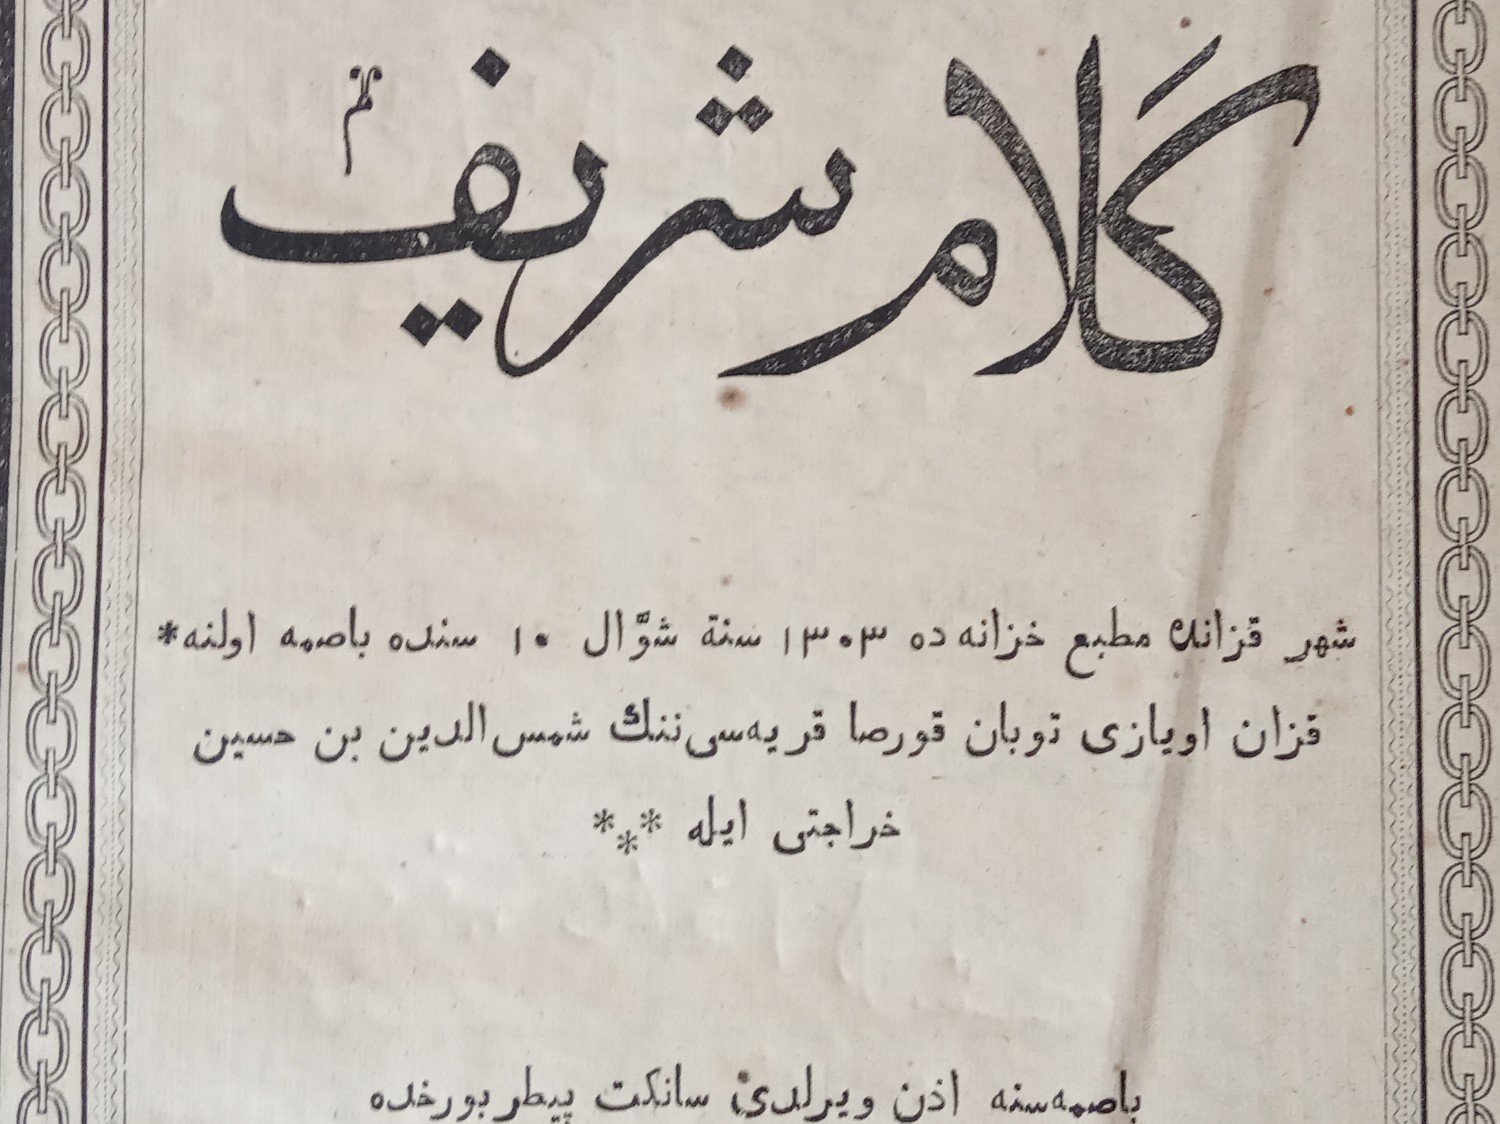 كلام شريف
شهر قزانده مطبع خزانه ده ١٣٠٣ سنة شوّال ١٠ سنده باصمه اولنه*
قزان اويازى توبان قورصا قريه‌سى‌ننك شمس‌الدين بن حسين
خراجتى ايله ***
باصمه‌سنه اذن ويرلدى سانكت پيطربورخده